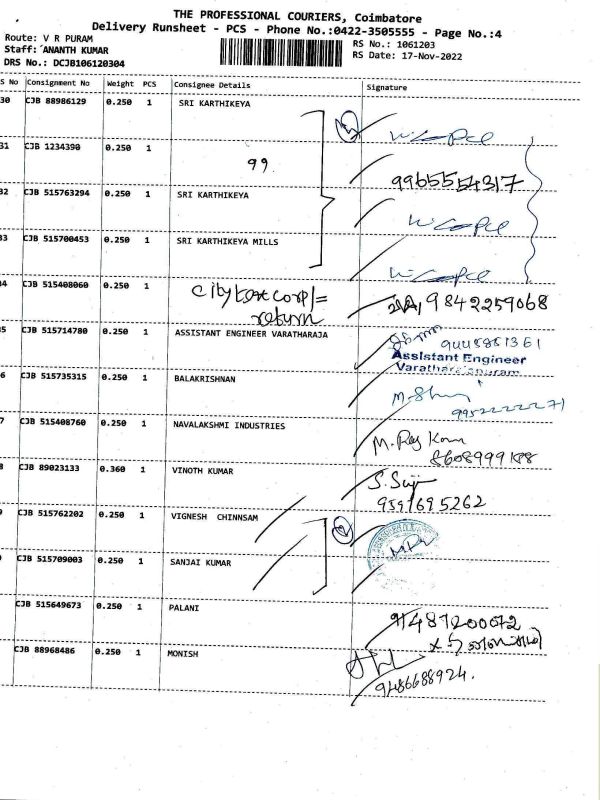 THE PROFESSIONAL COURIERS, Coimbatore
Delivery Runsheet - PCS - Phone No.:0422-3505555 - Page No.:4
Route: V R PURAM
Staff: ANANTH KUMAR
DRS No.: DCJB106120304
RS No.: 1061203
RS Date: 17-Nov-2022
S No Consignment No Weight PCS Consignee Details Signature
30 CJB 88986129 0.250 1 SRI KARTHIKEYA
31 CJB 1234390 0.250 1 99 9965554317
32 CJB 515763294 0.250 1 SRI KARTHIKEYA
33 CJB 515700453 0.250 1 SRI KARTHIKEYA MILLS
34 CJB 515408060 0.250 1 return 9842259068
5 CJB 515714780 0.250 1 ASSISTANT ENGINEER VARATHARAJA
Assistant Engineer
6 CJB 515735315 0.250 1 BALAKRISHNAN
7 CJB 515408760 0.250 1 NAVALAKSHMI INDUSTRIES
8 CJB 89023133 0.360 1 VINOTH KUMAR
9 CJB 515762202 0.250 1 VIGNESH CHINNSAM
CJB 515709003 0.250 1 SANJAI KUMAR
CJB 515649673 0.250 1 PALANI
CJB 88968486 0.250 1 MONISH
9486688924.